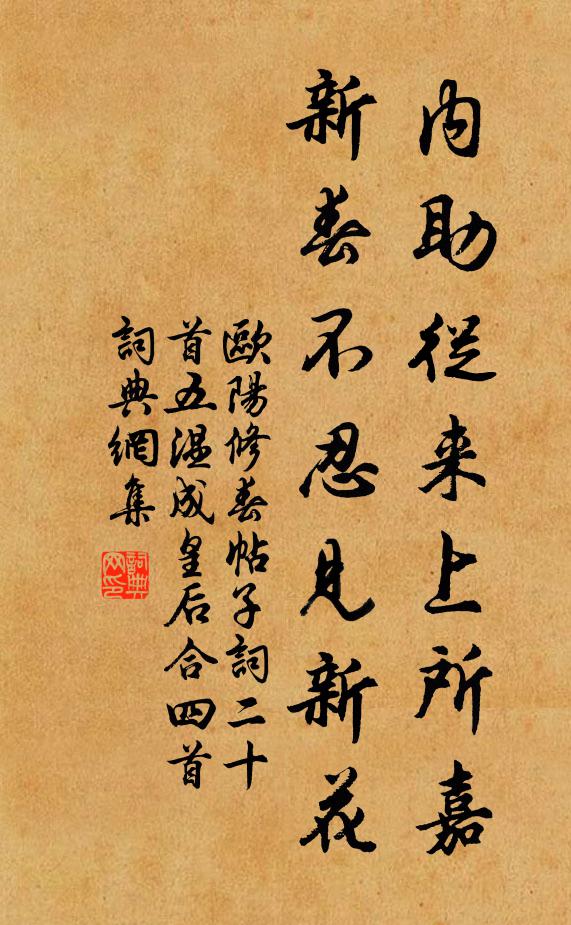 内助從来上所嘉
新春不忍見新花
歐陽修春帖子詞二十
首五温成皇后合四首
詞典網集
詞典网印